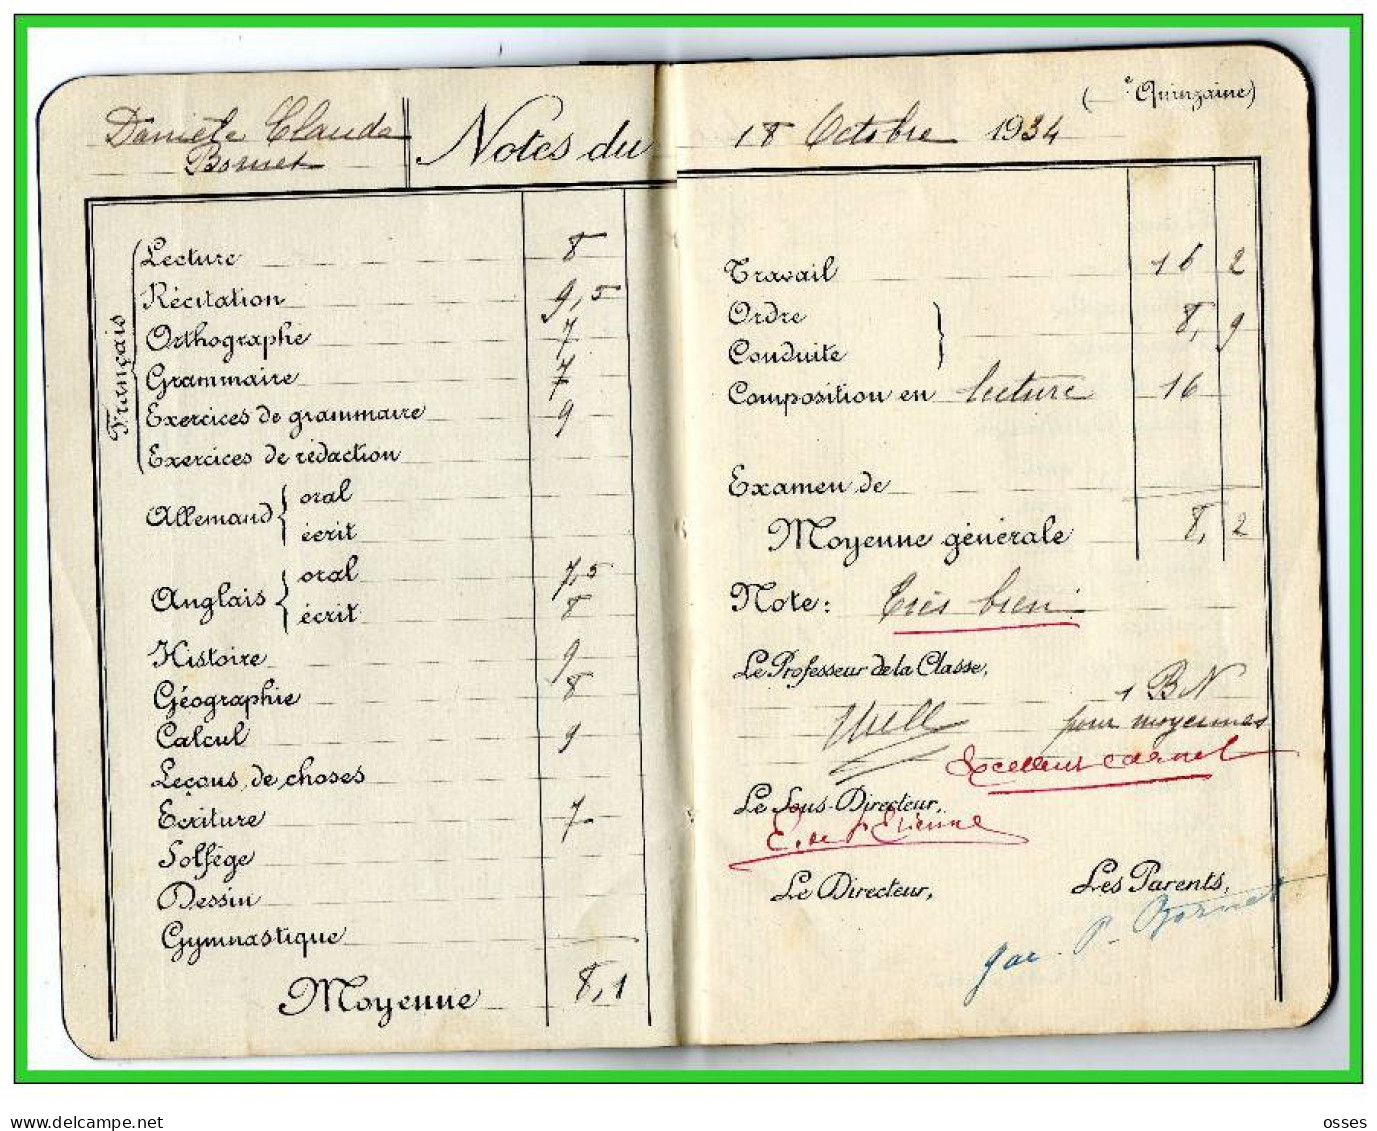 Danièle Claude
Bornet
Notes du 18 Octobre 1934
( e Quinzaine)
Français
Lecture 8
Récitation 9,5
Orthographe 7
Grammaire 7
Exercices de grammaire 9
Exercices de rédaction
Allemand { oral
écrit
Anglais { oral 7,5
écrit 8
Histoire 9
Géographie 8
Calcul 9
Leçons de choses
Ecriture 7
Solfège
Dessin
Gymnastique
Moyenne 8,1
Travail 16 2
Ordre
Conduite } 8, 9
Composition en lecture 16
Examen de
Moyenne générale 8, 2
Note: Très bien
Le Professeur de la Classe,
1 BN
pour moyennes
Excellent carnet
Le Sous-Directeur,
E. de St Etienne
Le Directeur,
Les Parents,
P. Bornet
delcampe.net
osses